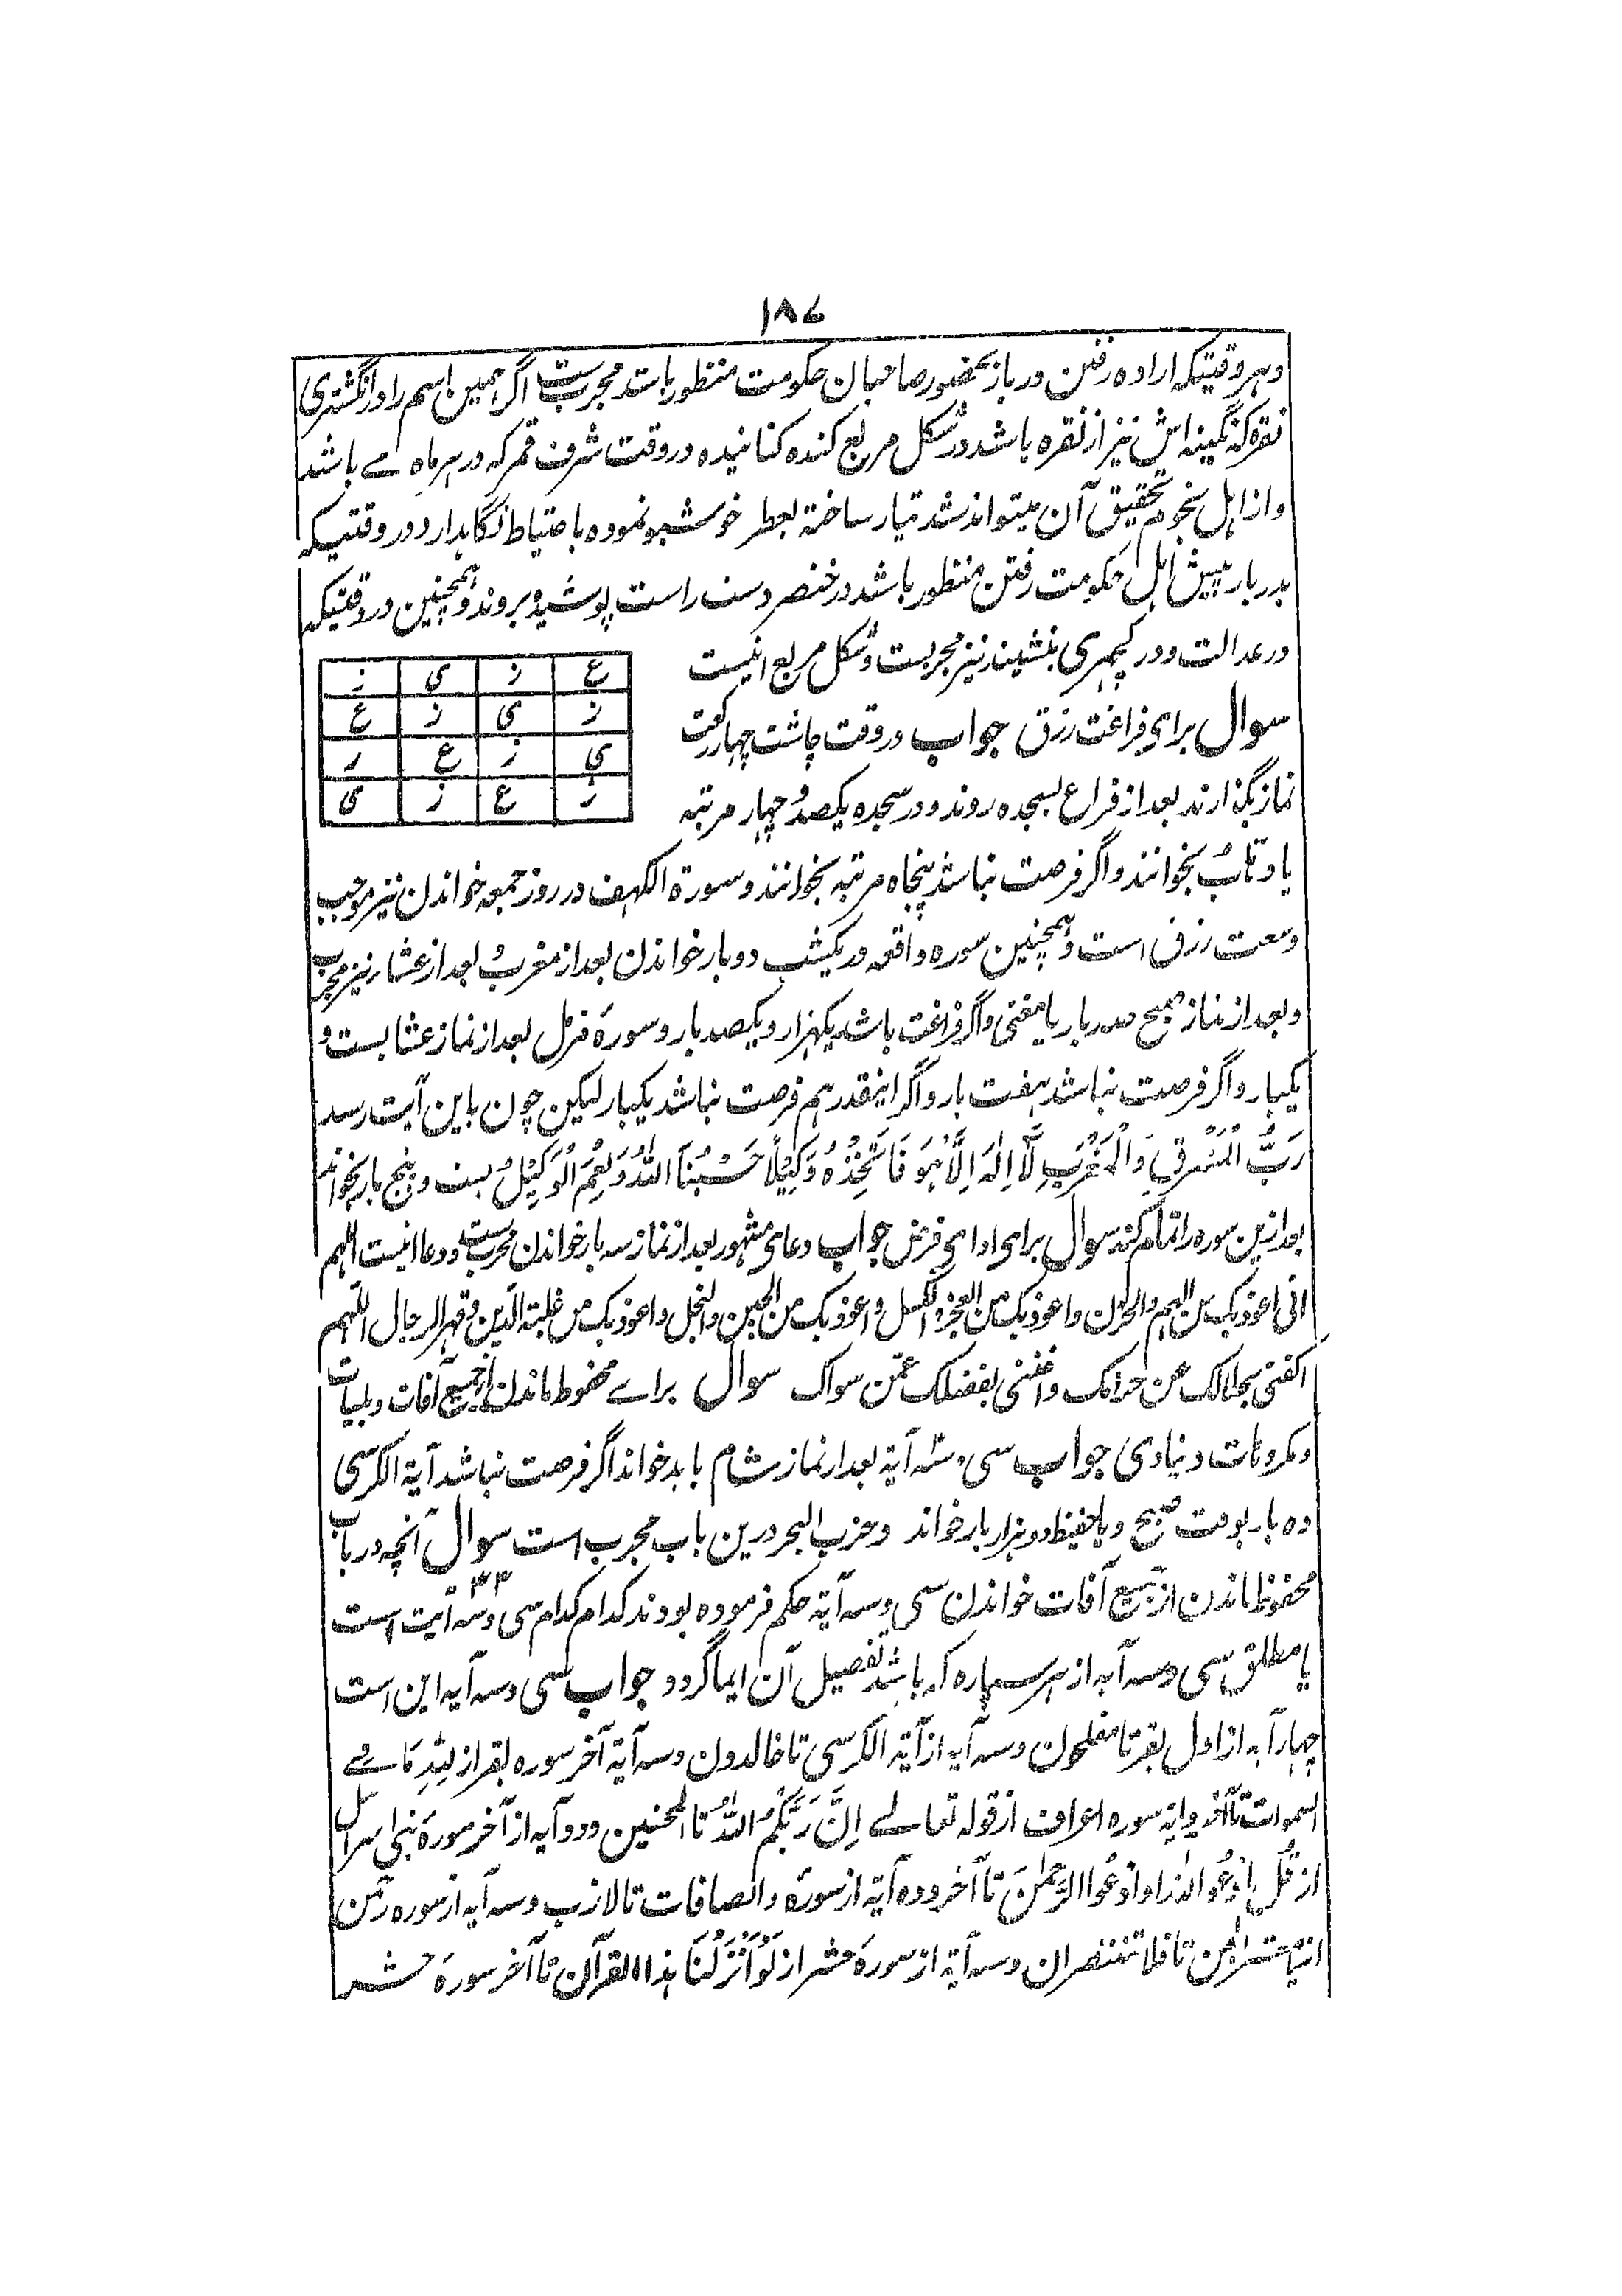 ١٨٧
وہروقتیکہ ارادہ رفتن دربار بحضور صاحبان حکومت منظور باشد مجربست اگر ہمین اسم را در انگشتری
نقرہ کہ نگینہ اش نیز از نقرہ باشد در شکل مربع کندہ کنانیدہ در وقت شرف قمر کہ در ہر ماہ مے باشد
و از اہل نجوم تحقیق آن میتواند شد تیار ساختہ بعطر خوشبو نمودہ با احتیاط نگاہدارد در وقتیکہ
بدربار پیش اہل حکومت رفتن منظور باشد در خنصر دست راست پوشیدہ بروند وہمچنین در وقتیکہ
در عدالت و در کچہری بنشینند نیز مجربست و شکل مربع انیست
ع ز ی ز
ز ی ز ع
ی ز ع ز
ز ع ز ی
سوال برای فراغت رزق جواب در وقت چاشت چہار رکعت
نماز بگزارند بعد از فراغ بسجدہ روند و در سجدہ یکصد و چہار مرتبہ
یا وہّابُ بخوانند و اگر فرصت نباشد پنجاہ مرتبہ بخوانند و سورۃ الکہف در روز جمعہ خواندن نیز موجب
وسعت رزق است وہمچنین سورہ واقعہ در یکشب دو بار خواندن بعد از مغرب و بعد از عشا نیز مجرب
و بعد از نماز صبح صد بار یا مغنی و اگر فراغت باشد یکہزار و یکصد بار و سورۂ مزمل بعد از نماز عشا بست و
یکبار و اگر فرصت نباشد ہفت بار و اگر اینقدر ہم فرصت نباشد یکبار لیکن چون باین آیت رسد
رَبُّ الْمَشْرِقِ وَالْمَغْرِبِ لَا اِلٰہَ اِلَّا ہُوَ فَاتَّخِذْہُ وَکِیْلًا حَسْبُنَا اللہُ وَنِعْمَ الْوَکِیْلُ بست و پنج بار بخواند
بعد ازین سورہ را تمام کند سوال برای ادای قرض جواب دعای مشہور بعد از نماز سہ بار خواندن مجربست و دعا انیست اللہم
انی اعوذبک من الہم والحزن واعوذبک من العجز والکسل واعوذبک من الجبن والبخل واعوذبک من غلبۃ الدین وقہر الرجال اللہم
اکفنی بحلالک عن حرامک واغننی بفضلک عمّن سواک سوال براے محفوظ ماندن از جمیع آفات و بلیات
و مکروہات دنیاوی جواب سی و سہ آیۃ بعد از نماز شام باید خواند اگر فرصت نباشد آیۃ الکرسی
دہ بار بوقت صبح و یا حفیظ دو ہزار بار خواند و حزب البحر درین باب مجرب است سوال آنچہ در باب
محفوظ ماندن از جمیع آفات خواندن سی و سہ آیۃ حکم فرمودہ بودند کدام کدام سی و سہ ٣٣ آیت است
یا مطلق سی و سہ آیہ از ہر سیپارہ کہ باشد تفصیل آن ایما گردد جواب سی و سہ آیہ این است
چہار آیہ از اول بقر تا مفلحون و سہ آیہ از آیۃ الکرسی تا خالدون و سہ آیۃ آخر سورہ بقر از لِلّٰہِ مَا فِے
السموات تا آخر و آیۃ سورہ اعراف از قولہ تعالے اِنَّ رَبَّکُمُ اللہُ تا المحسنین و دو آیہ از آخر سورۂ بنی اسرائیل
از قُلِ ادْعُوا اللہَ اَوِ ادْعُوا الرَّحْمٰنَ تا آخر و دہ آیۃ از سورۂ والصافات تا لازب و سہ آیہ از سورہ رحمن
از یا معشر الجن تا فلا تنتصران و سہ آیۃ از سورۂ حشر از لَوْ اَنْزَلْنَا ہذا القرآن تا آخر سورۂ حشر